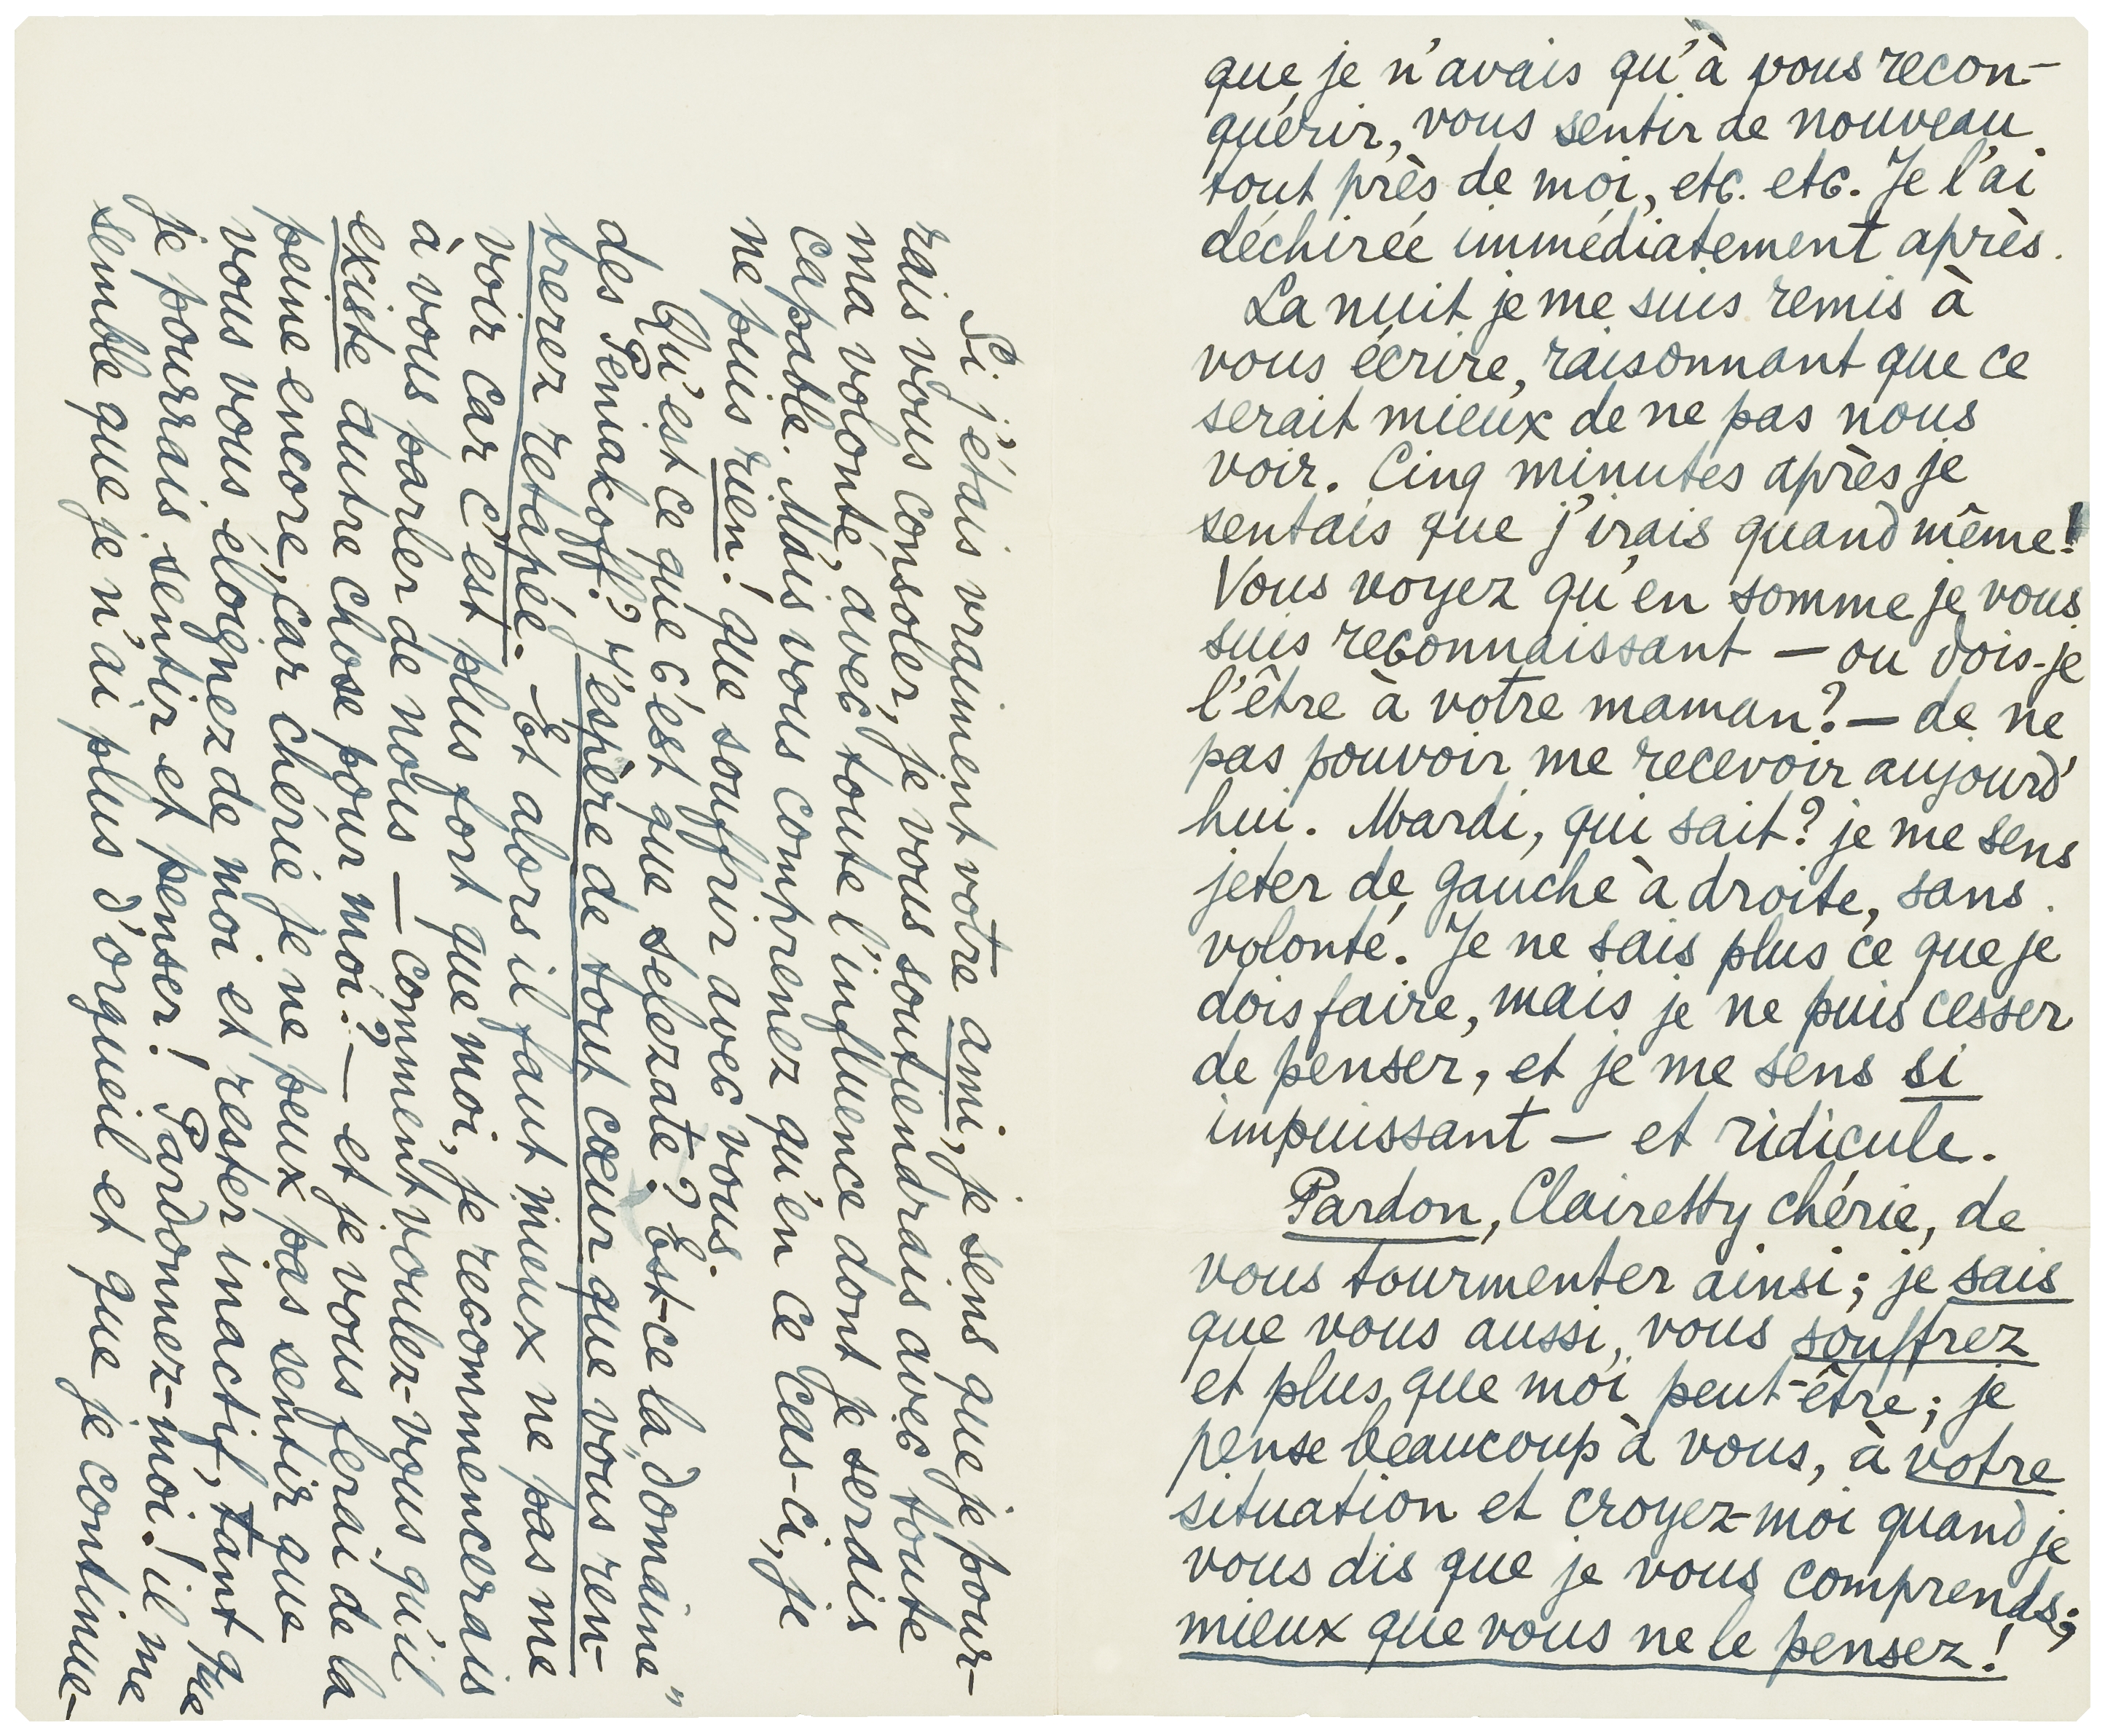 que je n'avais qu'à vous recon-
quérir, vous sentir de nouveau
tout près de moi, etc. etc. Je l'ai
déchirée immédiatement après.
La nuit je me suis remis à
vous écrire, raisonnant que ce
serait mieux de ne pas nous
voir. Cinq minutes après je
sentais que j'irais quand même!
Vous voyez qu'en somme je vous
suis reconnaissant — ou dois-je
l'être à votre maman? — de ne
pas pouvoir me recevoir aujourd'
hui. Mardi, qui sait? je me sens
jeter de gauche à droite, sans
volonté. Je ne sais plus ce que je
dois faire, mais je ne puis cesser
de penser, et je me sens si
impuissant — et ridicule.
Pardon, Clairetty chérie, de
vous tourmenter ainsi; je sais
que vous aussi, vous souffrez
et plus que moi peut-être; je
pense beaucoup à vous, à votre
situation et croyez-moi quand je
vous dis que je vous comprends;
mieux que vous ne le pensez!
Si j'étais vraiment votre ami, je sens que je pour-
rais vous consoler, je vous soutiendrais avec toute
ma volonté, avec toute l'influence dont je serais
capable. Mais vous comprenez qu'en ce cas-ci, je
ne puis rien! que souffrir avec vous.
Qu'est ce que c'est que Selezate? Est-ce la "domaine"
des Peniakoff? J'espère de tout cœur que vous ren-
trerez retapée. Et alors il faut mieux ne pas me
voir car c'est plus fort que moi, je recommencerais
à vous parler de nous — comment voulez-vous qu'il
existe autre chose pour moi? — et je vous ferai de la
peine encore, car chérie je ne peux pas sentir que
vous vous éloignez de moi et rester inactif, tant que
je pourrais sentir et penser! Pardonnez-moi! il me
semble que je n'ai plus d'orgueil et que je continue-